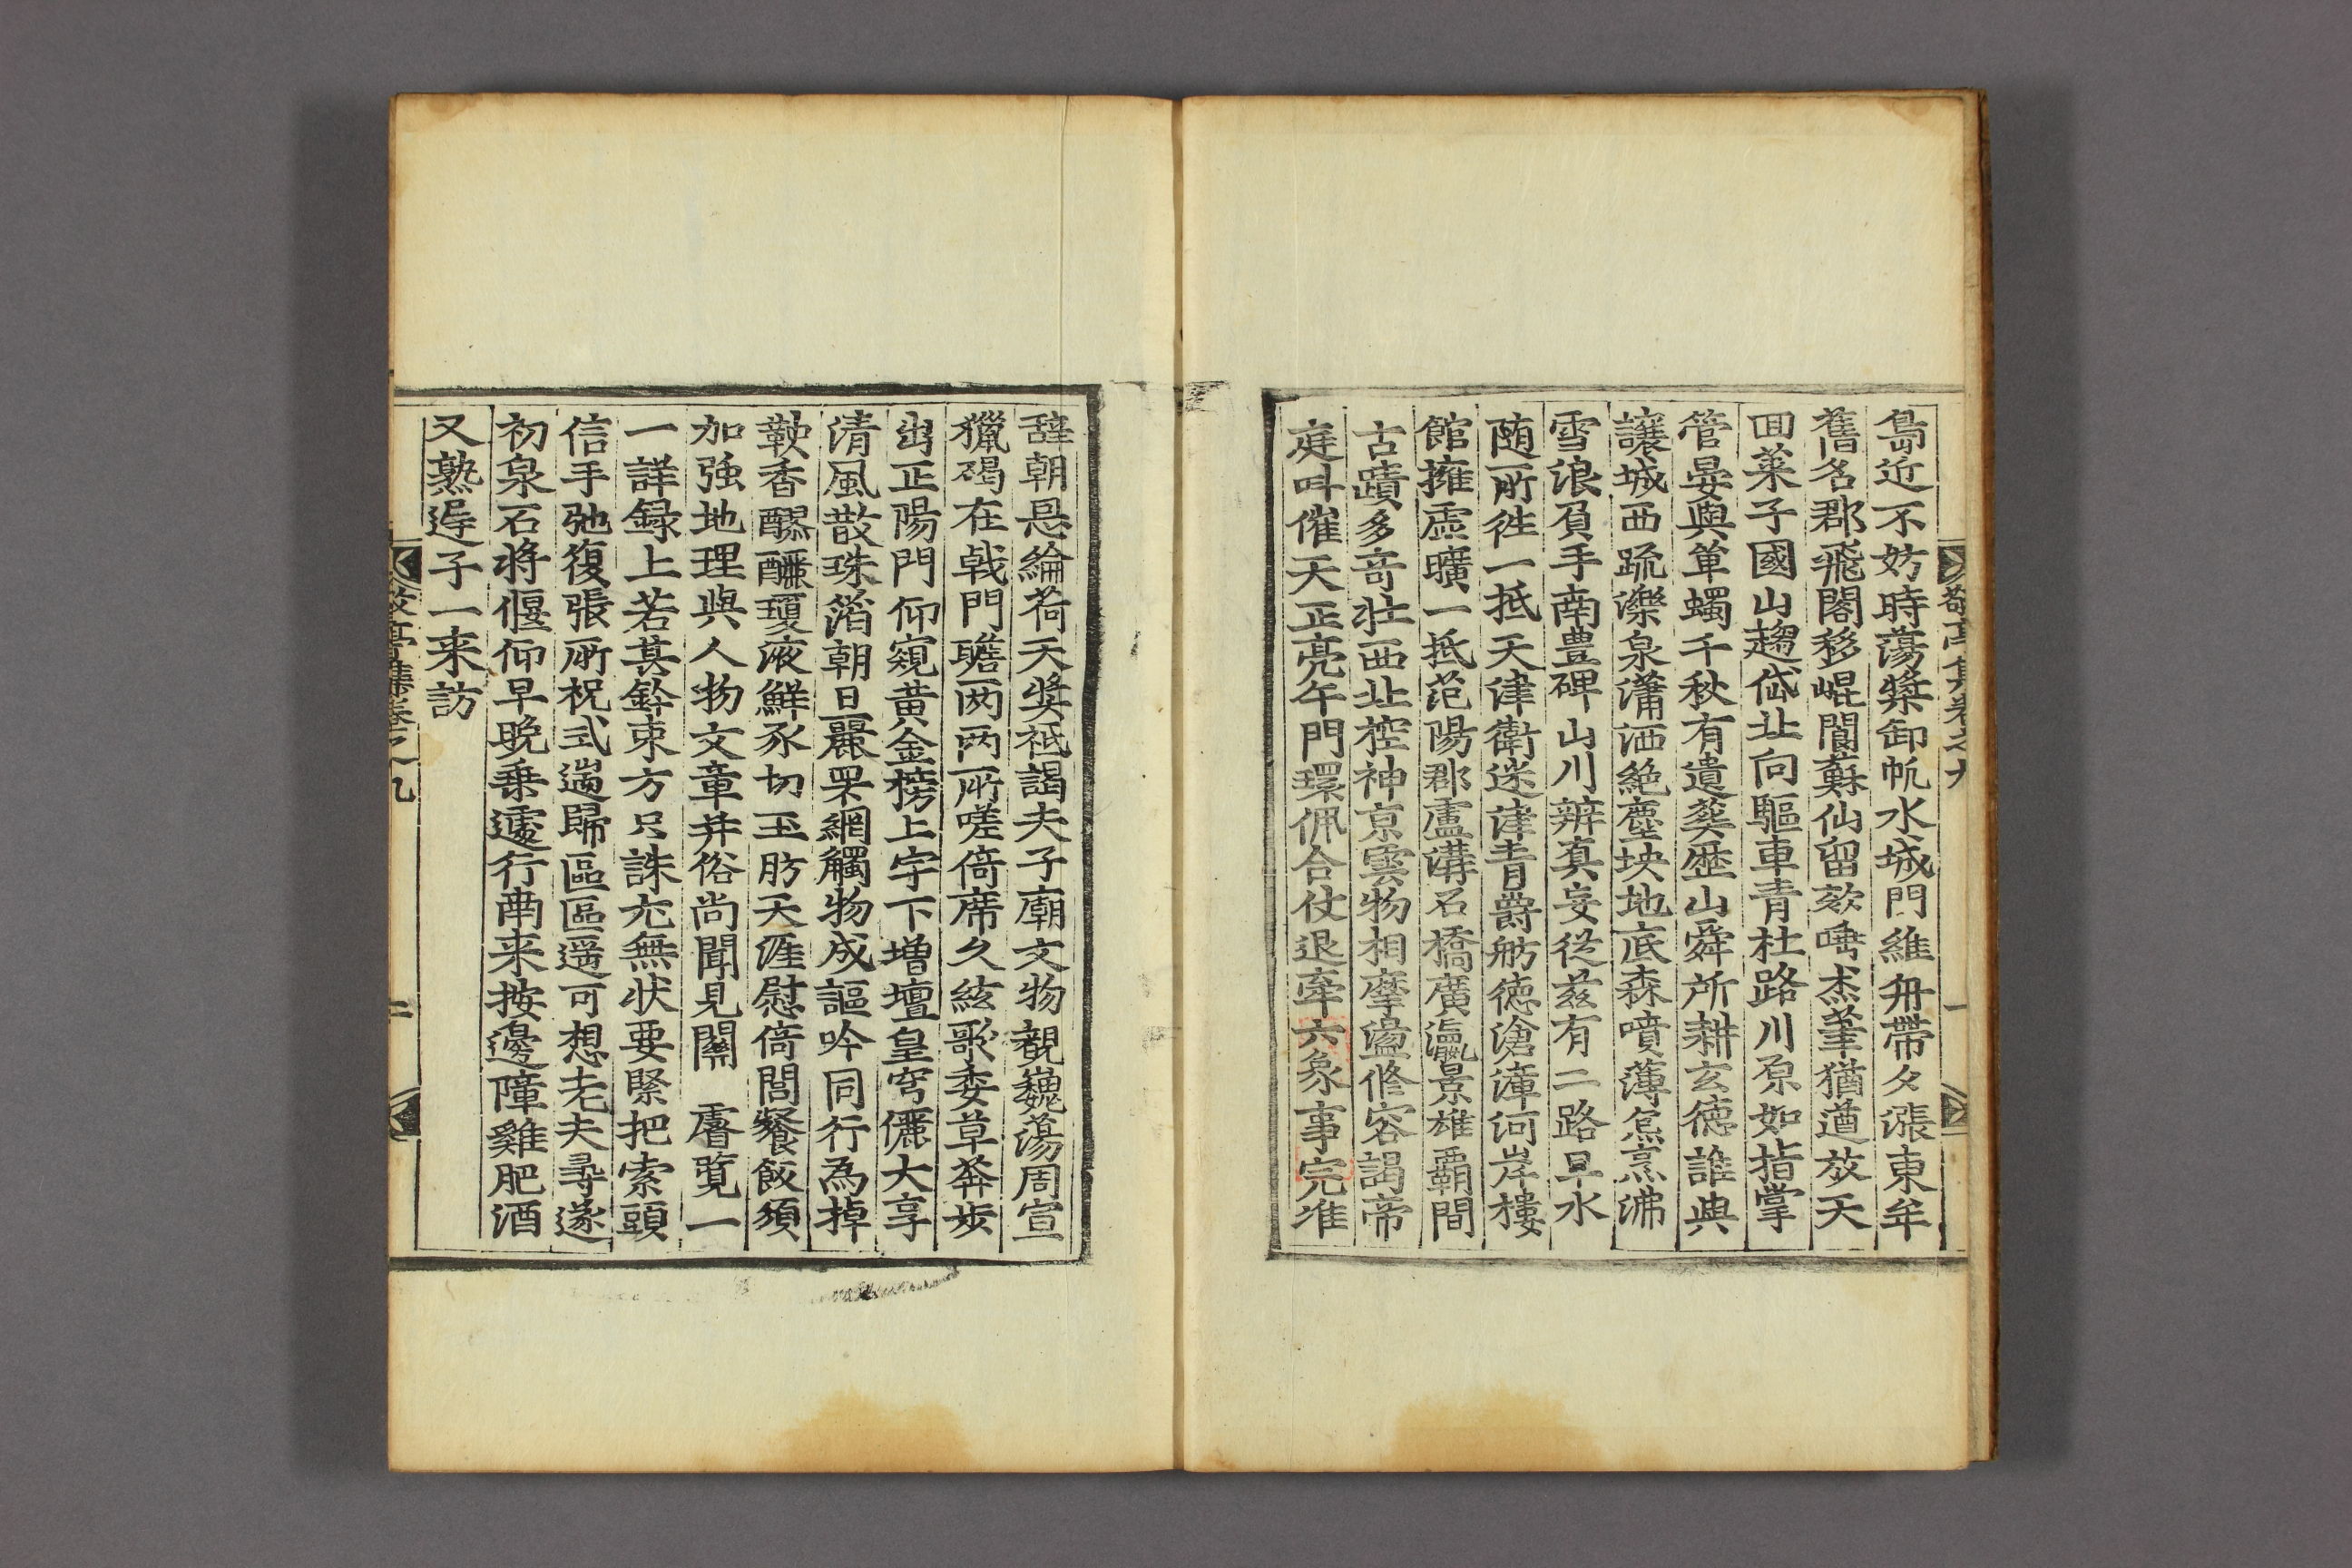 敬亭集卷之九
一
島近不妨時蕩槳卸帆水城門維舟帶夕漲東牟
舊名郡飛閣移崐閬蘇仙留欬唾杰筆猶遒放天
回萊子國山趨岱北向驅車青杜路川原如指掌
管晏與單蠋千秋有遺塟歷山舜所耕玄德誰與
讓城西䟽濼泉瀟洒絶塵坱地底森噴薄㷛烹沸
雪浪負手南豊碑山川辨真妄從茲有二路早水
随所徃一抵天津衛迷津青爵舫德滄漳河岸樓
館擁虛曠一抵范陽郡盧溝石橋廣瀛景雄覇間
古蹟多竒壮西北控神京雲物相摩盪修容謁帝
庭呌催天正亮午門環佩合仗退牽六象事完准
辝朝㤙綸荷天奬祗謁夫子廟文物覩巍蕩周宣
獵碣在戟門瞻两两所嗟倚席久絃歌委草莽歩
出正陽門仰窺黃金榜上宇下增壇皇穹儷大享
清風散珠箔朝日麗罘網觸物成謳吟同行為掉
鞅香醪釅瓊液鮮豕切玉肪天涯慰倚閭餐飯須
加強地理與人物文章并俗尚聞見関 睿覧一
一詳録上若其鈐束方只誅尤無状要緊把索頭
信手弛復張所祝式遄歸區區遥可想老夫尋遂
初泉石將偃仰早晚乗遽行南来按邊障雞肥酒
又熟遟子一来訪
敬亭集卷之九
二